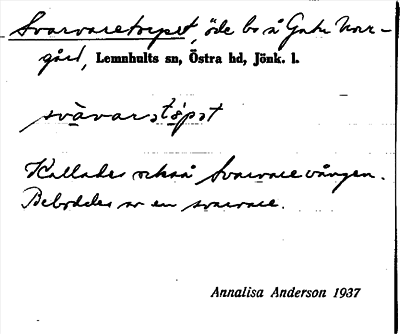 Svarvaretorpet, öde bo å Gate Norr-
gård, Lemnhults sn, Östra hd, Jönk. l.
svàvarətö̀pət
Kallades också Svarvarevången.
Beboddes av en svarvare.
Annalisa Anderson 1937